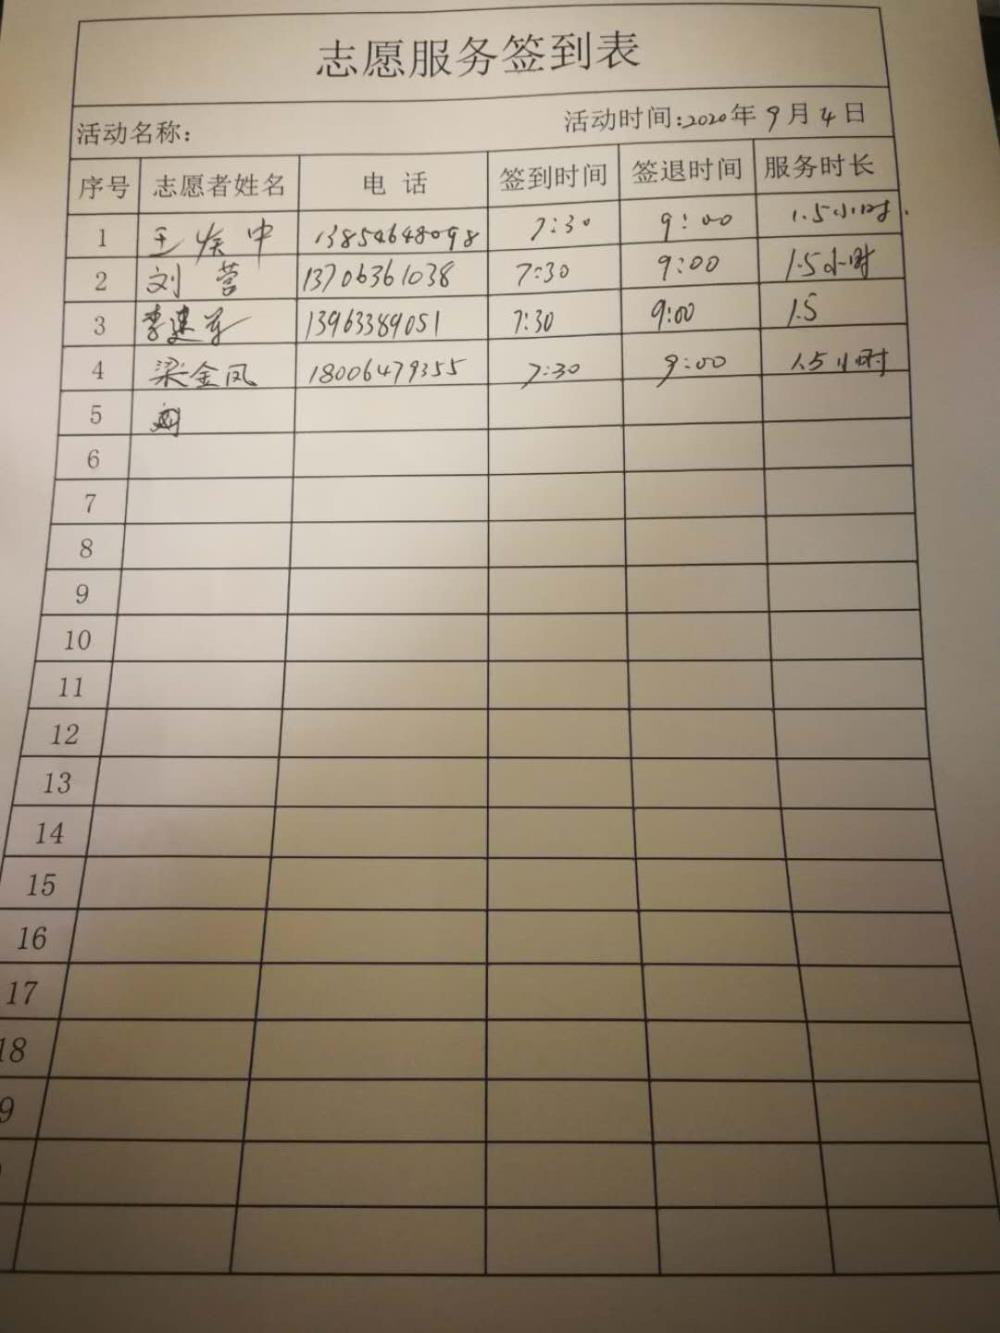 志愿服务签到表
活动名称: 活动时间:2020年9月4日
序号 志愿者姓名 电 话 签到时间 签退时间 服务时长
1 王 中 13854648098 7:30 9:00 1.5小时.
2 刘 营 13706361038 7:30 9:00 1.5小时
3 李建军 13963389051 7:30 9:00 1.5
4 梁金凤 18006479355 7:30 9:00 1.5小时
5
6
7
8
9
10
11
12
13
14
15
16
17
18
9